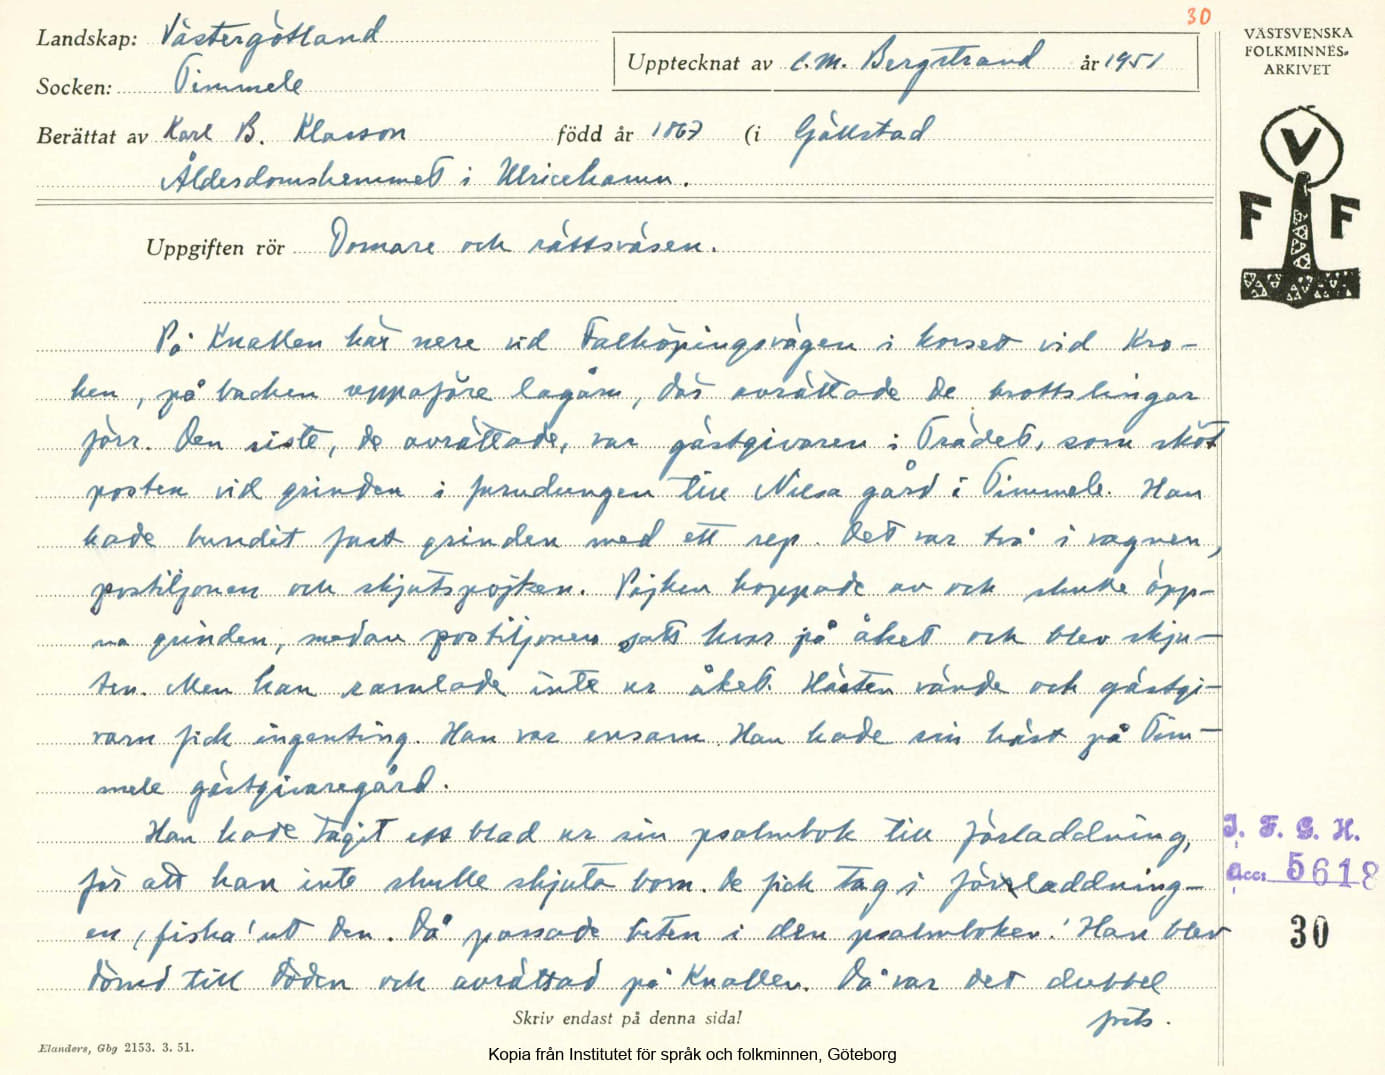 30
Landskap: Västergötland
Upptecknat av C. M. Bergstrand år 1951
VÄSTSVENSKA
FOLKMINNES-
ARKIVET
Socken: Timmele
Berättat av Karl B. Klasson född år 1867 (i Gällstad
Ålderdomshemmet i Ulricehamn.
V
F F
Uppgiften rör Domare och rättsväsen.
På Knallen här nere vid Falköpingsvägen i korset vid Kro-
ken, på backen uppaföre lagårn, där avrättade de brottslingar
förr. Den siste, de avrättade, var gästgivaren i Trädet, som sköt
posten vid grinden i furudungen till Nilsa gård i Timmele. Han
hade bundit fast grinden med ett rep. Det var två i vagnen,
postiljonen och skjutspojken. Pojken hoppade av och skulle öpp-
na grinden, medan postiljonen satt kvar på åket och blev skju-
ten. Men han ramlade inte ur åket. Hästen vände och gästgi-
varn fick ingenting. Han var ensam. Han hade sin häst på Tim-
mele gästgivaregård.
Han hade tagit ett blad ur sin psalmbok till förladdning,
för att han inte skulle skjuta bom. De fick tag i förladdning-
en, 'fiska' ut den. Då passade biten i den psalmboken. Han blev
dömd till döden och avrättad på Knallen. Då var det dubbel
Skriv endast på denna sida!
I. F. G. H.
Acc: 5618
30
Elanders, Gbg 2153. 3. 51.
Kopia från Institutet för språk och folkminnen, Göteborg